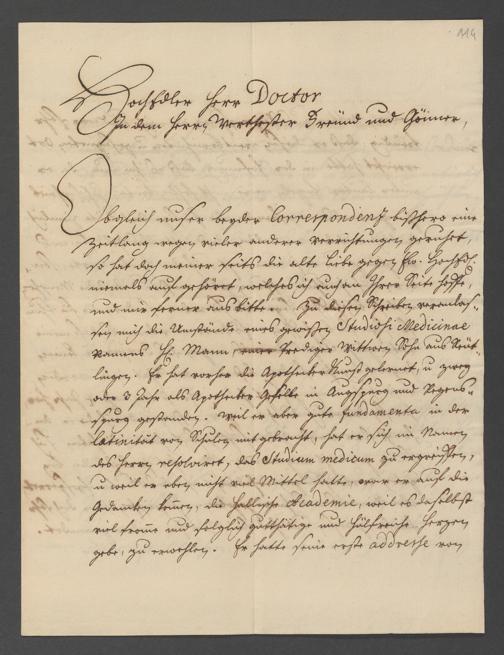 114
Hochedler Herr Doctor
In dem Herrn Werthester Freund und Gönner,
Obgleich unser beyder Correspondenz bißhero eine
Zeitlang wegen vieler anderer verrichtungen geruhet,
so hat doch meiner seits die alte Liebe gegen Ew. Hochedl.
niemals auf gehöret, welches ich auch an Ihrer Seite hoffe,
und mir ferner ausbitte. Zu diesen Schreiben veranlas-
sen mich die Umstände eines gewißen Studiosi Medicinae
Namens H. Mann, Prediger Wittwen Sohn aus Reut-
lingen. Er hat vorher die Apothecker Kunst gelernet, u zwey
oder 3 Jahr als Apothecker Geselle in Augspurg und Regens-
spurg gestanden. Weil er aber gute fundamenta in der
latinität von Schulen mit gebracht, hat er sich im Namen
des Herrn resolviret, das Studium medicum zu ergreiffen,
u weil er eben nicht viel Mittel hatte, war er auf die
Gedancken kommen, die Hallische Academie, weil es daselbst
viel fromme und folglich gutthätige und hülfreiche Herzen
gebe, zu erwehlen. Er hatte seine erste addresse von